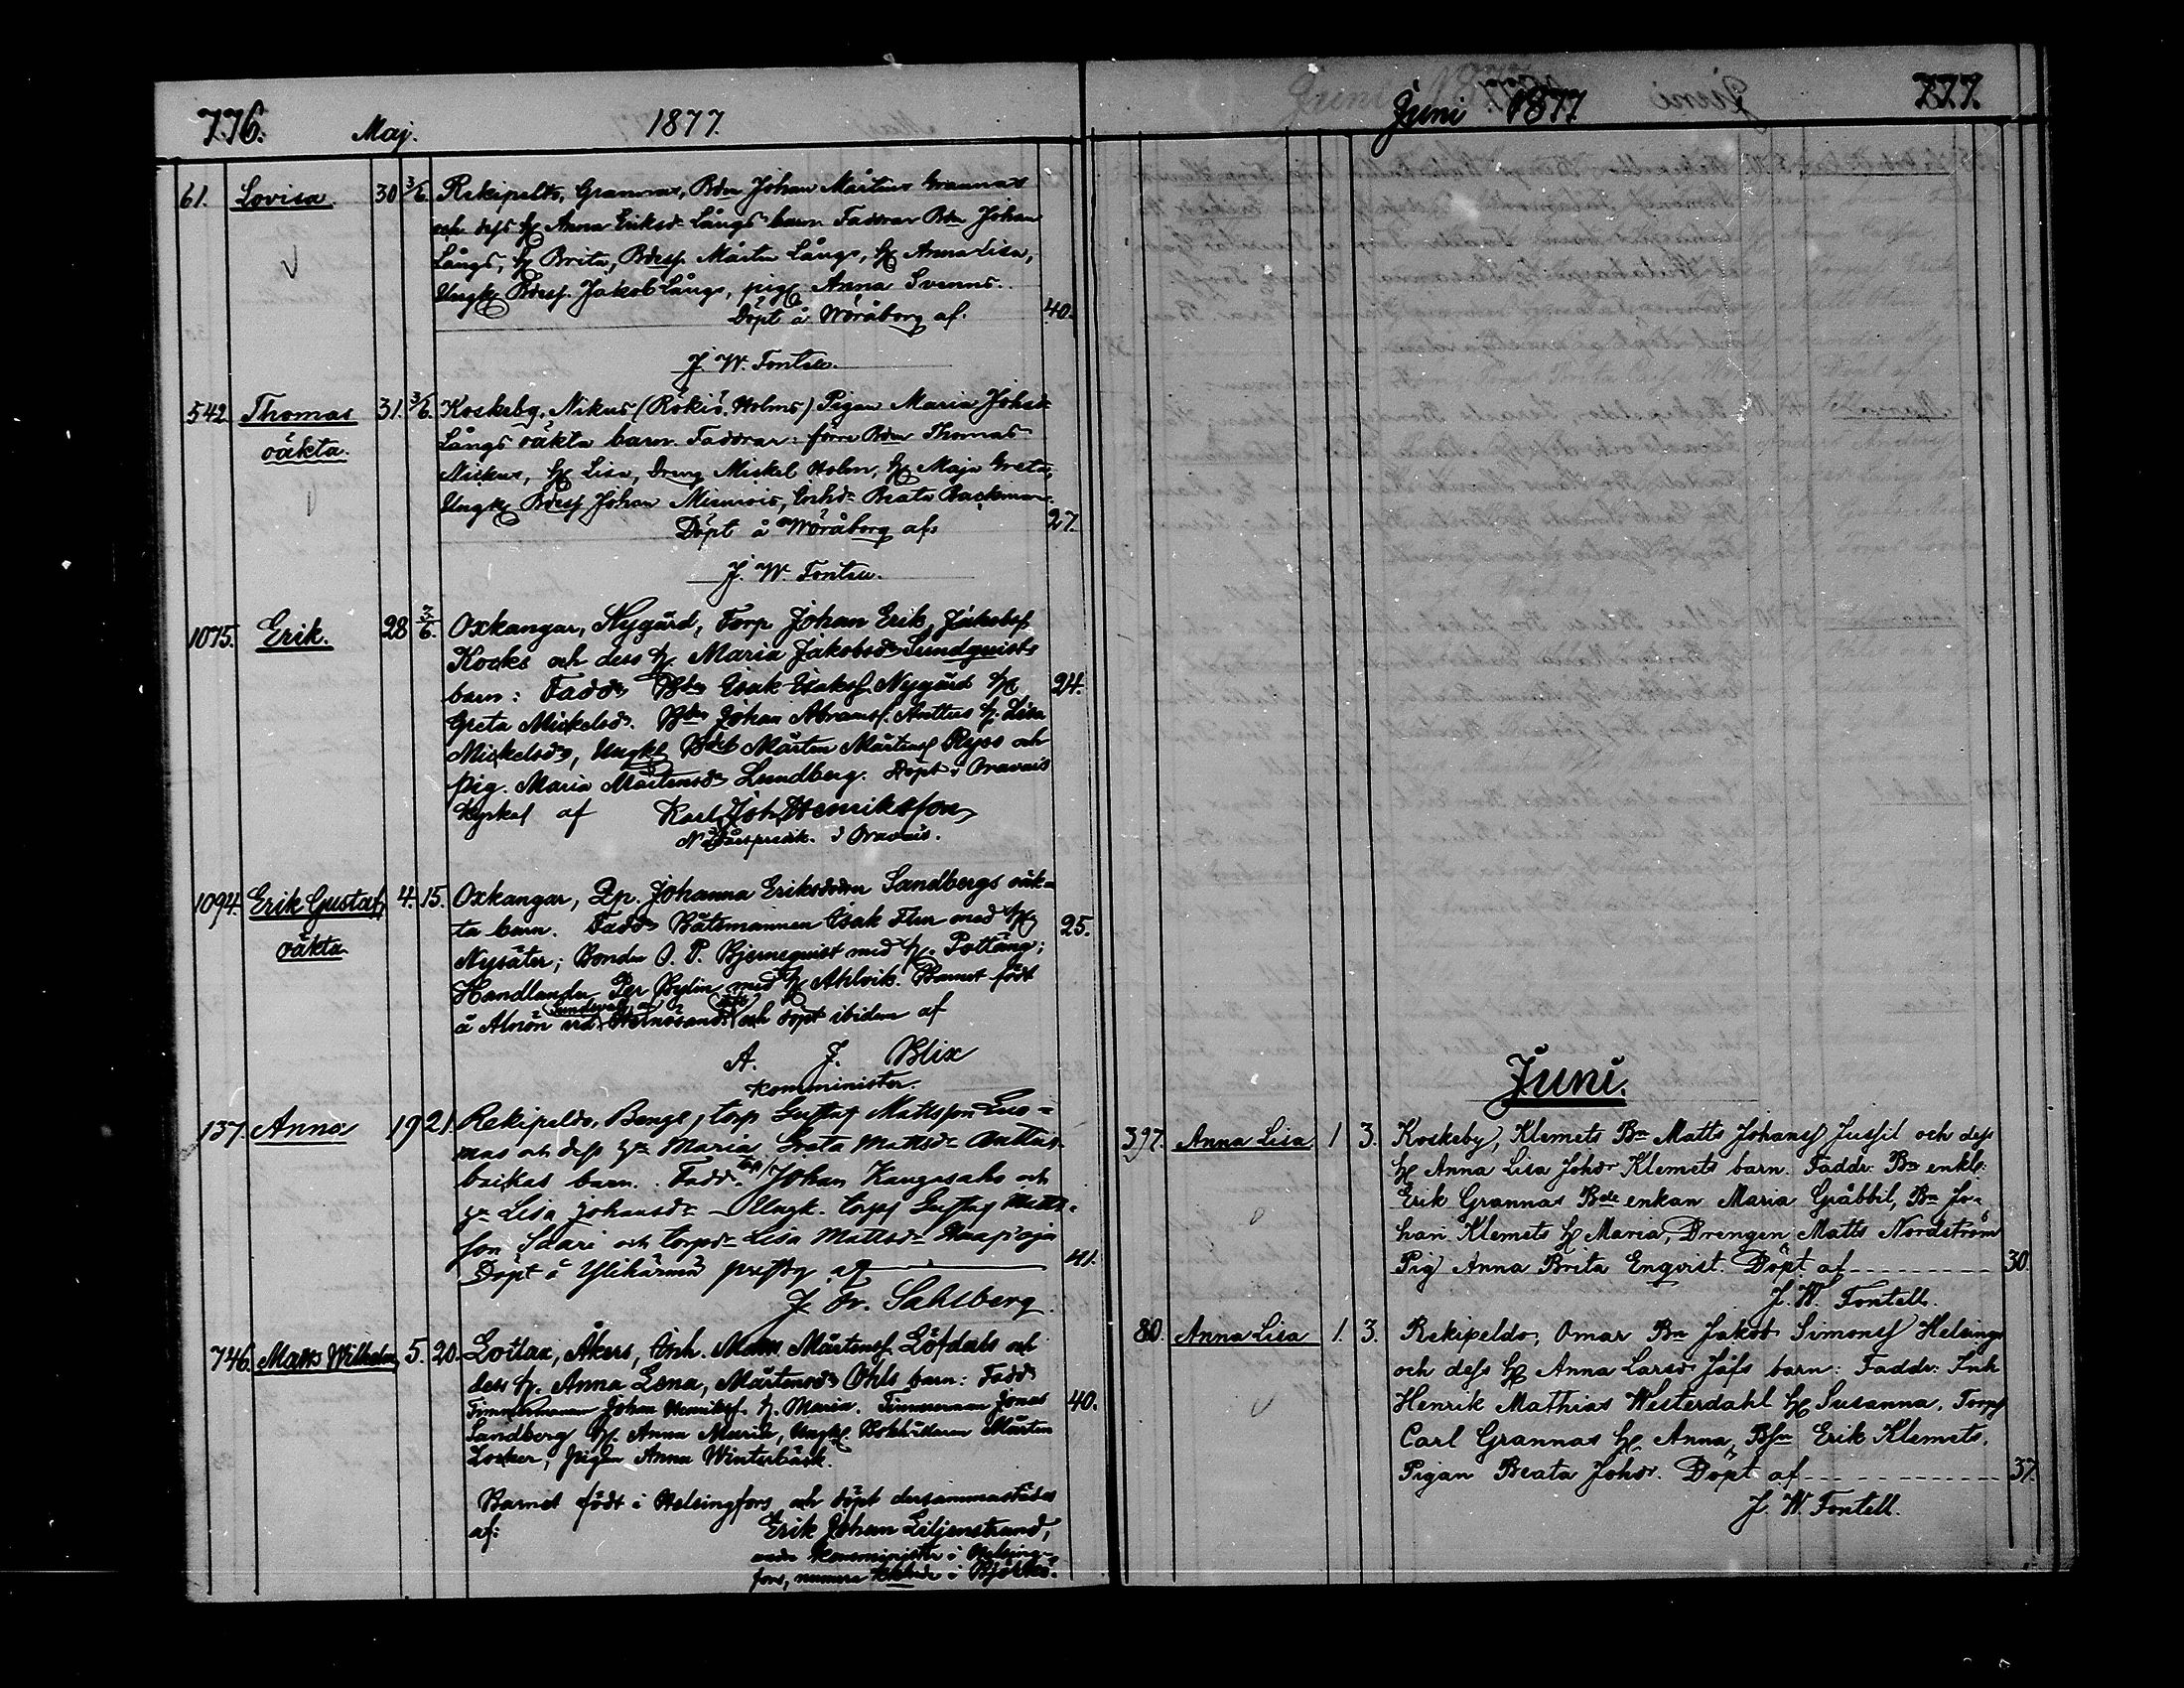 776. Maj. 1877.
61. Lovisa. 30 3/6. Rekipeldo, Grannas, Bdn Johan Mårtens Grannas
och dess H. Anna Eriksd. Långs barn Faddrar Bdn Johan
Långs, H. Brita, Bdesf. Mårten Långs, H. Anna Lisa,
Ungk. Bdesf. Jakob Långs, pig. Anna Svenns.
Döpt å Wöråborg af. 40.
J. W. Fontell.
542 Thomas 31. 3/6. Koskeby, Nikus (Rökiö, Holms) Pigan Maria Johsd.
oäkta. Långs oäkta barn. Faddrar: förre Bdn Thomas
Nickus, H. Lisa, Dreng Mickel Holm, H. Maja Greta,
Ungk. Bdesf Johan Miemois, Inhd. Beata Backman.
Döpt å Wöråborg af: 27.
J. W. Fontell.
1075. Erik. 28 3/6. Oxkangar, Nygård, Torp Johan Erik Jakobsf
Kocks och dess H. Maria Jakobsdr Sundqvists
barn: Fadd. Bdn Esak Esaksf. Nygård H. 24.
Greta Mickelsdr. Bdn Johan Abramsf. Anttus H. Lisa
Mickelsdr, Ungkl Bdes Mårten Mårtensf Ryss och
pig. Maria Mårtensdr Lundberg. Döpt i Oravais
kyrkal af Karl Joh. Henriksson,
Nådårspredik. i Oravais.
1094. Erik Gustaf, 4. 15. Oxkangar, Qp. Johanna Eriksdotter Sandbergs oäk-
oäkta ta barn. Fadd. Båtsmannen Isak Flur med H. 25.
Nysäter; Bonden O. P. Bjernequist med H. Pottäng;
Handlanden Per Bylin med H. Ahlvik. Barnet födt
å Alnön vid Sundsvall och döpt ibidem af
A. J. Blix
Komminister.
137. Anna 19 21 Rekipeldo, Benge, torp Gustaf Mattsson Luo-
mas och dess H. Maria Greta Mattsdr Anttas-
beikas barn. Fadd. Johan Kangasaho och
H. Lisa Johansdr Ungk. torpf Gustaf Matts-
son Saari och torpdr Lisa Mattsdr Haapoja
Döpt å Ylihärmä prestg. af 41.
J. Fr. Sahlberg
746. Matts Wilhelm, 5. 20. Lotlax, Åkers, Inh. Matts Mårtensf. Löfdals och
dess H. Anna Lena, Mårtensdr Ohls barn: Fadd.
Timmerman Johan Henriksf. H. Maria. Timmerman Jonas 40.
Sandberg H. Anna Maria, Ungk. Bokhållaren Mårten
Locker, Pigan Anna Winterbäck.
Barnet födt i Helsingfors och döpt dersammastädes
af: Erik Johan Liljenstrand,
komminister i Helsing-
fors, numera i Björkö.
Juni 1877 777.
Juni.
397. Anna Lisa 1 3. Koskeby, Klemets Bn Matts Johansf Jussil och dess
H. Anna Lisa Johdr Klemets barn. Faddr: Bn enkl:
Erik Grannas Bde enkan Maria Gräbbil, Bn Jo-
han Klemets H. Maria, Drengen Matts Nordström
Pig Anna Brita Enqvist. Döpt af 30.
J. W. Fontell.
80. Anna Lisa 1. 3. Rekipeldo, Omar Bn Jakob Simonsf Helsing
och dess H. Anna Larsdr Jåfs barn: Faddr: Inh
Henrik Mathias Westerdahl H. Susanna, Torp
Carl Grannas H. Anna, Bsn Erik Klemets,
Pigan Beata Johdr. Döpt af 37.
J. W. Fontell.